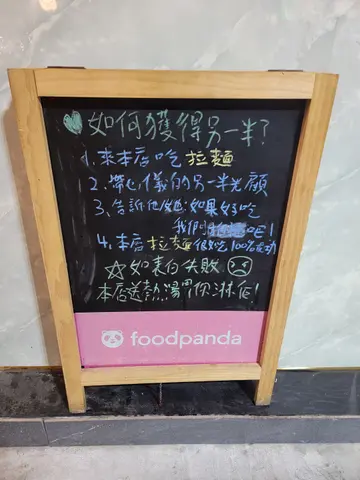 如何獲得另一半?
1、來本店吃拉麵
2、帶心儀的另一半光顧
3、告訴他/她如果好吃
我們吧!
4、本店拉麵很好吃100%成功
☆如表白失敗
本店送熱湯你淋他!
foodpanda